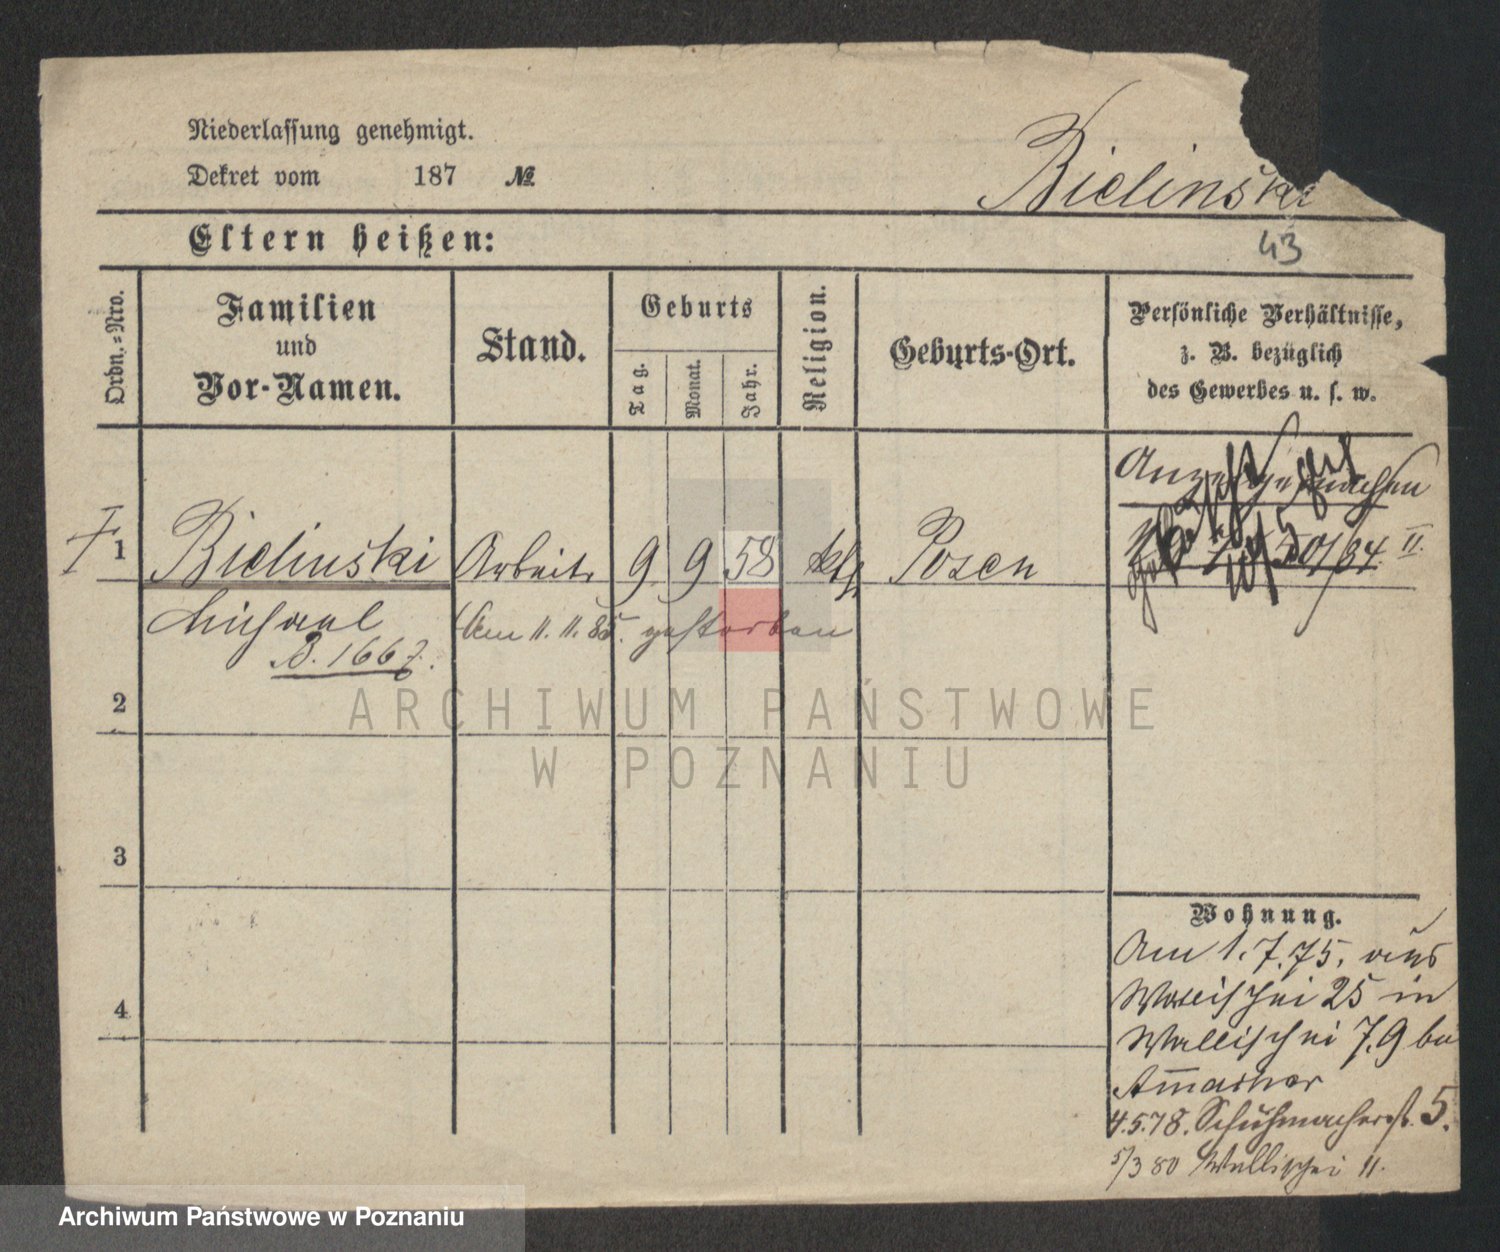 Niederlassung genehmigt.
Dekret vom 187 №
Bielinski
Eltern heißen:
43
Ordn.=Nro.
Familien
und
Vor-Namen.
Stand.
Geburts
Tag.
Monat.
Jahr.
Religion.
Geburts-Ort.
Persönliche Verhältnisse,
z. B. bezüglich
des Gewerbes u. s. w.
1
Bielinski Arbeit. 9 9 58 kth Posen
50/84. II.
Michael (Am 11. 11. 85. gestorben
B. 1667.
2
ARCHIWUM PAŃSTWOWE
W POZNANIU
3
Wohnung.
Am 1.7.75. aus
Wallischei 25 in
Wallischei 7.9 bei
4
4.5.78. Schuhmacherst. 5.
5/3 80 Wallischei 11.
Archiwum Państwowe w Poznaniu